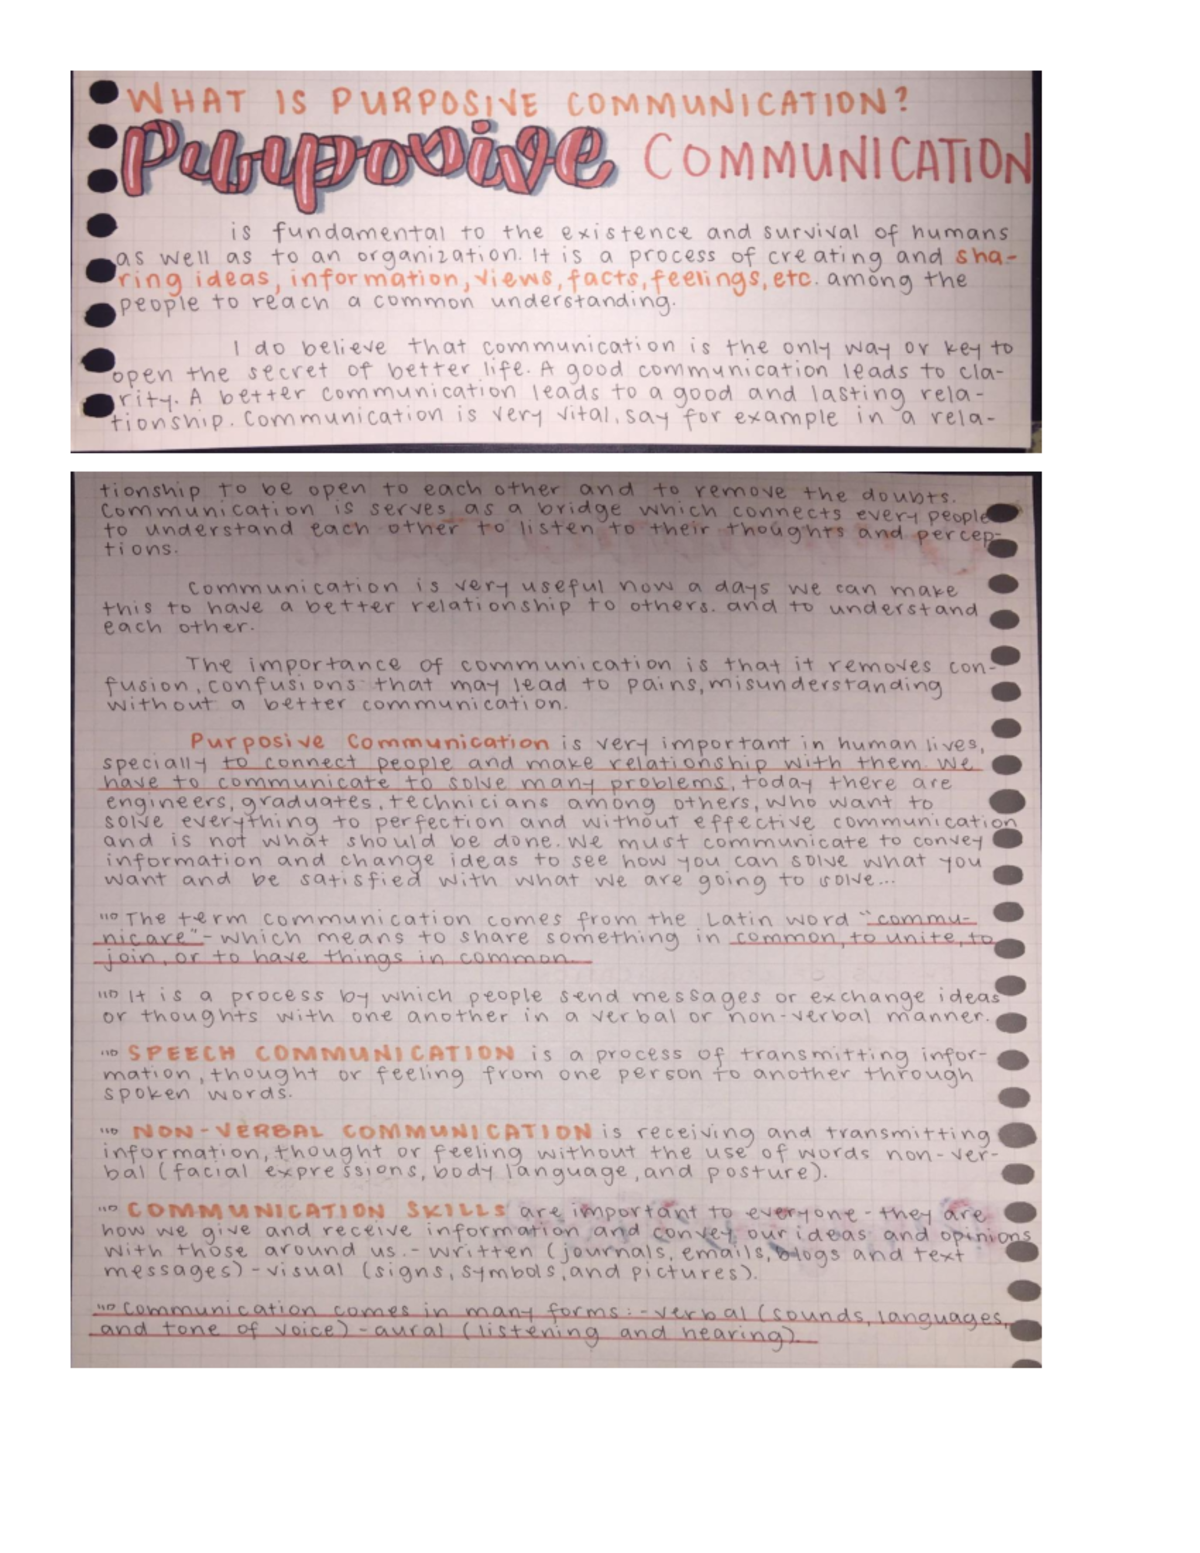 WHAT IS PURPOSIVE COMMUNICATION?
Purposive COMMUNICATION
is fundamental to the existence and survival of humans
as well as to an organization. It is a process of creating and sha-
ring ideas, information, views, facts, feelings, etc. among the
people to reach a common understanding.
I do believe that communication is the only way or key to
open the secret of better life. A good communication leads to cla-
rity. A better communication leads to a good and lasting rela-
tionship. Communication is very vital, say for example in a rela-
tionship to be open to each other and to remove the doubts.
Communication is serves as a bridge which connects every people
to understand each other to listen to their thoughts and percep-
tions.
Communication is very useful now a days we can make
this to have a better relationship to others. and to understand
each other.
The importance of communication is that it removes con-
fusion, confusions that may lead to pains, misunderstanding
without a better communication.
Purposive Communication is very important in human lives,
specially to connect people and make relationship with them. We
have to communicate to solve many problems, today there are
engineers, graduates, technicians among others, who want to
solve everything to perfection and without effective communication
and is not what should be done. We must communicate to convey
information and change ideas to see how you can solve what you
want and be satisfied with what we are going to solve...
The term communication comes from the Latin word "commu-
nicare" - which means to share something in common, to unite, to
join, or to have things in common.
It is a process by which people send messages or exchange ideas
or thoughts with one another in a verbal or non-verbal manner.
SPEECH COMMUNICATION is a process of transmitting infor-
mation, thought or feeling from one person to another through
spoken words.
NON-VERBAL COMMUNICATION is receiving and transmitting
information, thought or feeling without the use of words non-ver-
bal (facial expressions, body language, and posture).
COMMUNICATION SKILLS are important to everyone - they are
how we give and receive information and convey our ideas and opinions
with those around us. - written (journals, emails, blogs and text
messages) - visual (signs, symbols, and pictures).
Communication comes in many forms: - verbal (sounds, languages,
and tone of voice) - aural (listening and hearing)